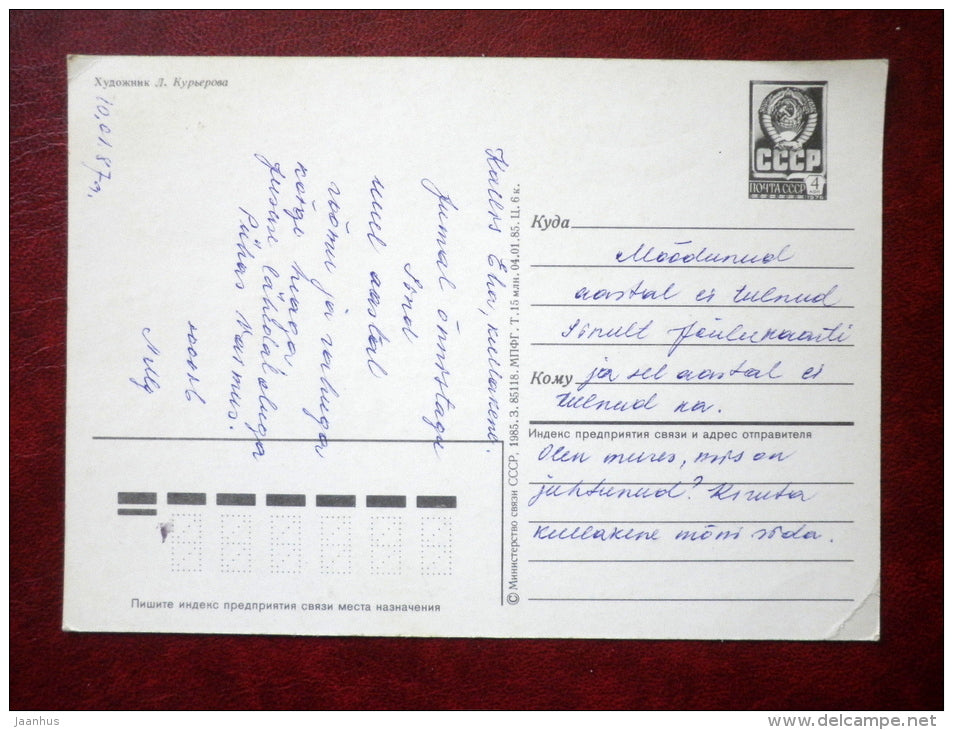 Художник Л. Курьерова
10.01.87г.
Kallis Eha, kullakene.
Jumal õnnistagu
Sind
uuel aastal
rõõmu ja rahuga
kõige heaga,
Jeesuse läheduse
Pühas Vaimus.
© Министерство связи СССР, 1985. З. 85118. МПФГ. Т. 15 млн. 04.01.85. Ц. 6 к.
СССР
ПОЧТА СССР
4
Куда
Möödunud
aastal ei tulnud
Sinult jõulukaarti
Кому ja sel aastal ei
tulnud ka.
Индекс предприятия связи и адрес отправителя
Olen mures, mis on
juhtunud? Kirjuta
kullakene mõni rida.
Пишите индекс предприятия связи места назначения
jaanhus
www.delcampe.net